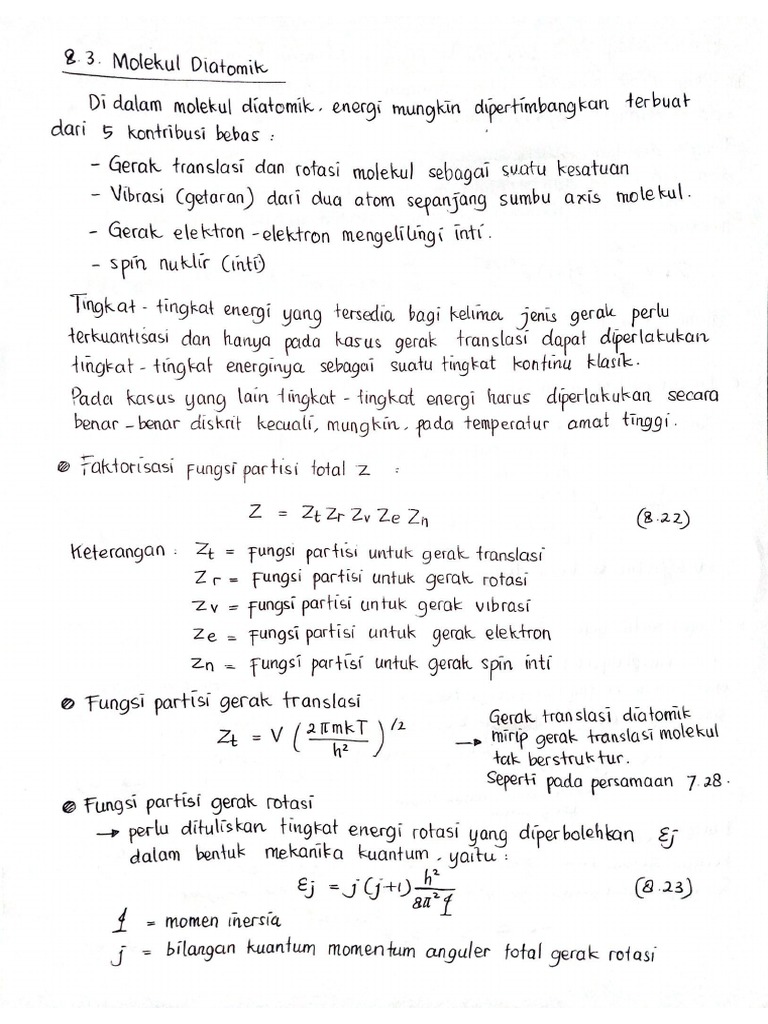 8.3. Molekul Diatomik
Di dalam molekul diatomik, energi mungkin dipertimbangkan terbuat
dari 5 kontribusi bebas :
- Gerak translasi dan rotasi molekul sebagai suatu kesatuan
- Vibrasi (getaran) dari dua atom sepanjang sumbu axis molekul.
- Gerak elektron-elektron mengelilingi inti.
- spin nuklir (inti)
Tingkat-tingkat energi yang tersedia bagi kelima jenis gerak perlu
terkuantisasi dan hanya pada kasus gerak translasi dapat diperlakukan
tingkat-tingkat energinya sebagai suatu tingkat kontinu klasik.
Pada kasus yang lain tingkat-tingkat energi harus diperlakukan secara
benar-benar diskrit kecuali, mungkin, pada temperatur amat tinggi.
Faktorisasi Fungsi partisi total Z :
Z = Zt Zr Zv Ze Zn (8.22)
Keterangan : Zt = Fungsi partisi untuk gerak translasi
Zr = Fungsi partisi untuk gerak rotasi
Zv = Fungsi partisi untuk gerak vibrasi
Ze = Fungsi partisi untuk gerak elektron
Zn = Fungsi partisi untuk gerak spin inti
Fungsi partisi gerak translasi
Zt = V (2πmkT / h²)^1/2 → Gerak translasi diatomik
mirip gerak translasi molekul
tak berstruktur.
Seperti pada persamaan 7.28.
Fungsi partisi gerak rotasi
→ perlu dituliskan tingkat energi rotasi yang diperbolehkan Ɛj
dalam bentuk mekanika kuantum, yaitu :
Ɛj = j(j+1) h² / 8π²I (8.23)
I = momen inersia
j = bilangan kuantum momentum anguler total gerak rotasi